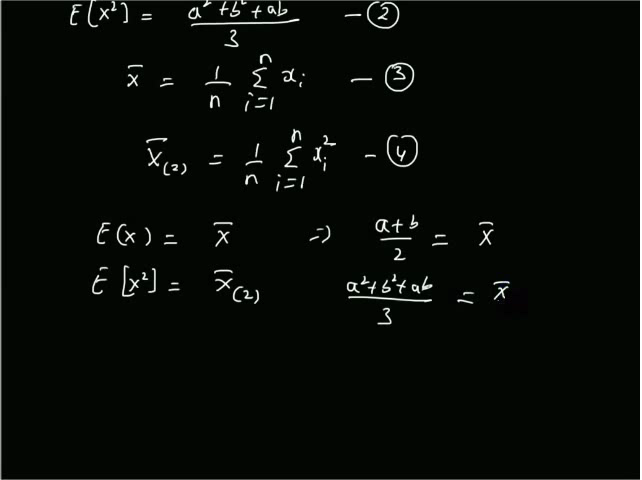 E[x²] = a²+b²+ab / 3 — ②
x̄ = 1/n Σ_{i=1}^{n} x_i — ③
x̄_(2) = 1/n Σ_{i=1}^{n} x_i² — ④
E(x) = x̄ ⇒ a+b / 2 = x̄
E[x²] = x̄_(2) a²+b²+ab / 3 = x̄